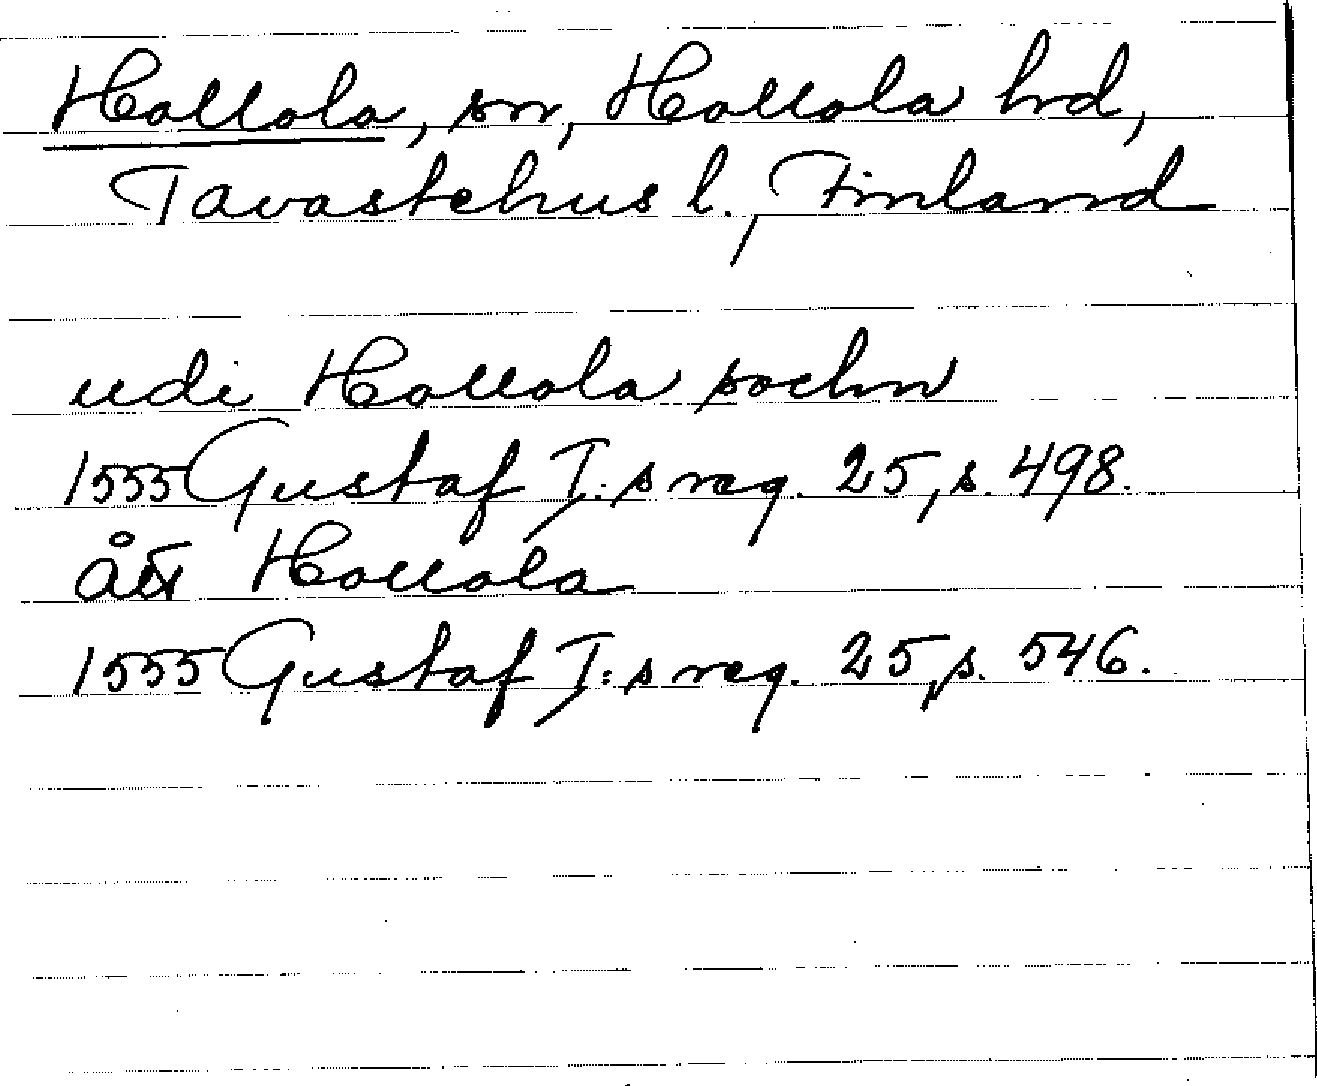 Hollola, sn, Hollola hrd,
Tavastehus l., Finland
udi Hollola sochn
1555 Gustaf I:s reg. 25, s. 498.
ått Hollola
1555 Gustaf I:s reg. 25, s. 546.